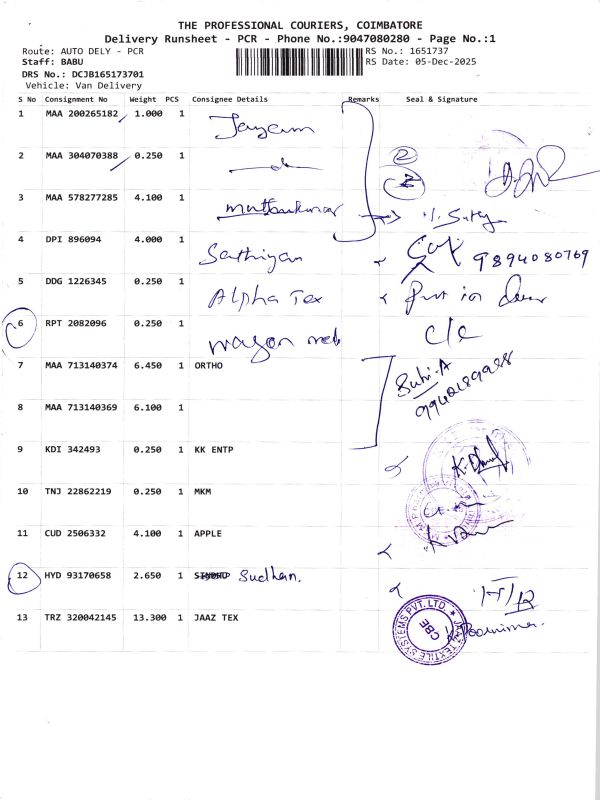 THE PROFESSIONAL COURIERS, COIMBATORE
Delivery Runsheet - PCR - Phone No.:9047080280 - Page No.:1
Route: AUTO DELY - PCR
RS No.: 1651737
Staff: BABU
RS Date: 05-Dec-2025
DRS No.: DCJB165173701
Vehicle: Van Delivery
S No Consignment No Weight PCS Consignee Details Remarks Seal & Signature
1 MAA 200265182 1.000 1 Jayam
2 MAA 304070388 0.250 1 2
3 MAA 578277285 4.100 1 muthukumar
4 DPI 896094 4.000 1 Sathiyan 9894080769
5 DDG 1226345 0.250 1 Alpha Tex Put in door
6 RPT 2082096 0.250 1 wagon c/c
7 MAA 713140374 6.450 1 ORTHO
8 MAA 713140369 6.100 1
9 KDI 342493 0.250 1 KK ENTP
10 TNJ 22862219 0.250 1 MKM
11 CUD 2506332 4.100 1 APPLE
12 HYD 93170658 2.650 1 Sudhan.
13 TRZ 320042145 13.300 1 JAAZ TEX
JAAZ TEXTILE SYSTEMS PVT. LTD.
CBE
Poornima.